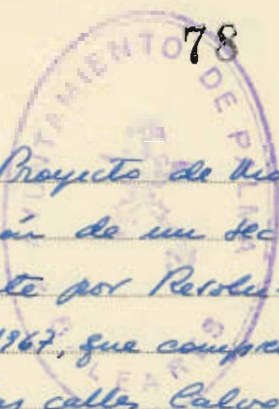 78
AYUNTAMIENTO DE PALMA
BALEARES
Proyecto de
ón de un sec
te por Resolu-
1967, que compren
calles Calvo